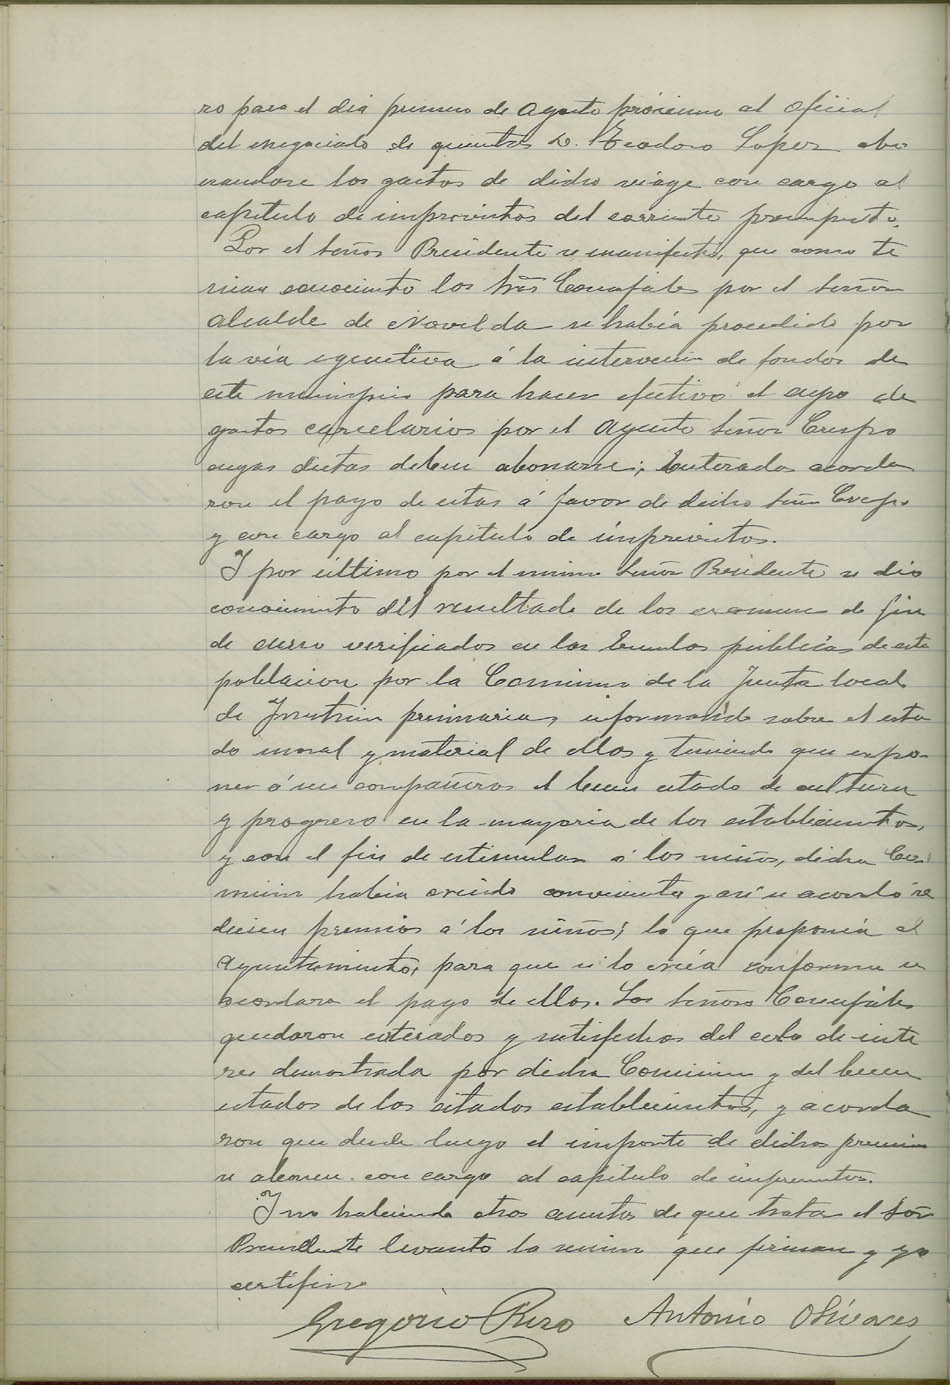 ro para el dia primero de Agosto próximo al oficial
del negociado de quintas D. Teodoro Lopez abo
nandose los gastos de dicho viage con cargo al
capitulo de imprevistos del corriente presupuesto.
Por el Señor Presidente se manifestó, que como te
nian conocimiento los Sres Concejales por el Señor
Alcalde de Novelda se habia procedido por
la via egecutiva á la intervencion de fondos de
este municipio para hacer efectivo el cupo de
gastos carcelarios por el Agente Señor Crespo
cuyas dietas deben abonarse; Enterados acorda
ron el pago de estas á favor de dicho Señor Crespo
y con cargo al capitulo de imprevistos.
Y por último por el mismo Señor Presidente se dio
conocimiento del resultado de los examenes de fin
de curso verificados en las Escuelas públicas de esta
poblacion por la Comision de la Junta local
de Instruccion primaria, informando sobre el esta
do moral y material de ellas y teniendo que expo-
ner á sus compañeros el buen estado de cultura
y progreso en la mayoria de los establecimientos,
y con el fin de estimular á los niños, dicha Co
mision habia creido conveniente y así se acordó se
diesen premios á los niños; lo que proponia al
Ayuntamiento, para que si lo creía conforme se
acordara el pago de ellos. Los Señores Concejales
quedaron enterados y satisfechos del celo de inte
res demostrada por dicha Comision y del buen
estados de los citados establecimientos, y acorda
ron que desde luego el importe de dichos premios
se abonen con cargo al capitulo de imprevistos.
Y no habiendo otros asuntos de que tratar el Sör
Presidente levanto la sesion que firman y yo
certifico
Gregorio Rizo Antonio Olivares